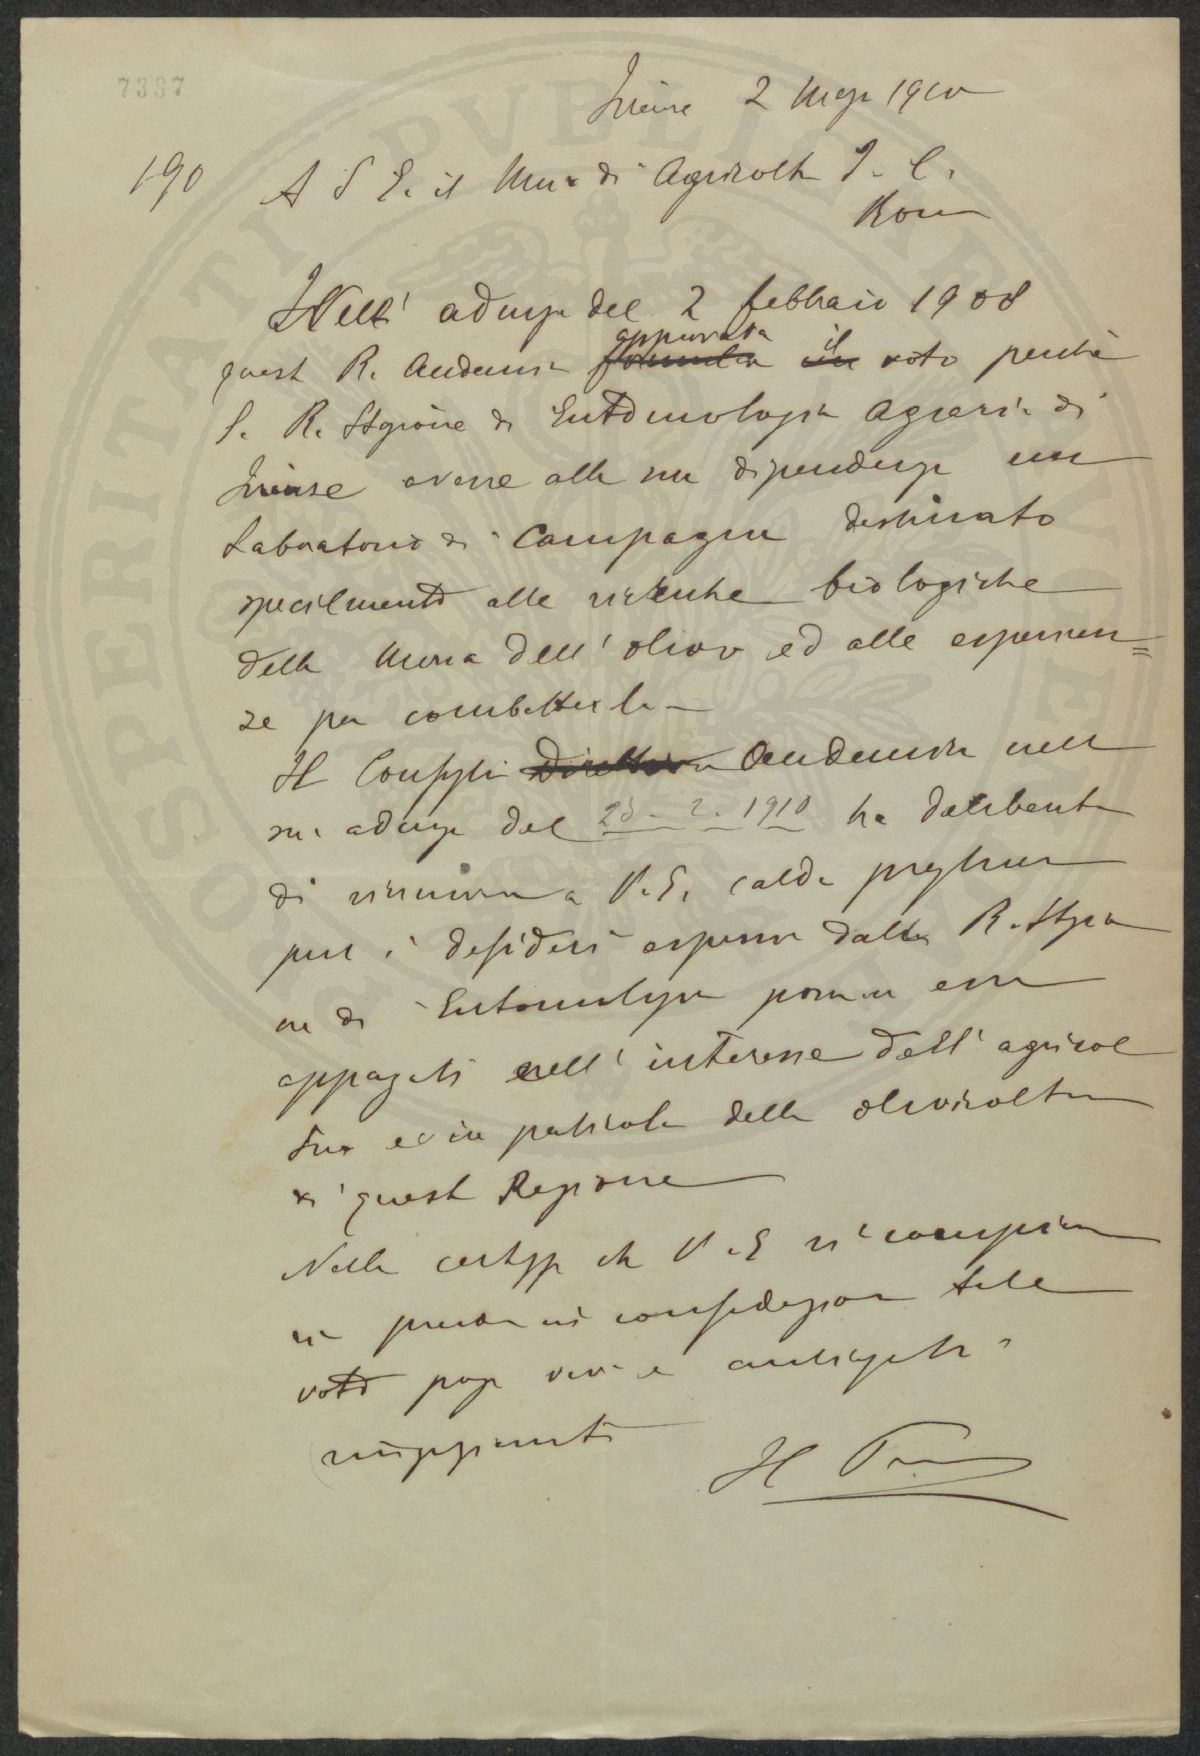 7337
Firenze 2 Mag 1910
190
A S. E. il Min. di Agricolt I. C.
Roma
Nell' adunza del 2 febbraio 1908
approvava il
quest R. Accademia formulava un voto perchè
la R. Stazione di Entomologia Agraria di
Firenze avesse alla sua dipendenza un
Laboratorio di Campagna destinato
specialmente alle ricerche biologiche
della Mosca dell' olivo ed alle esperien=
ze per combatterla
Il Consiglio Direttivo Accademico nella
sua adunza del 23. 2. 1910 ha deliberato
di rinnovare a V. E. calda preghiera
perchè i desideri espressi dalla R. Stazio
ne di Entomologia possano essere
appagati nell' interesse dell' agricol
tura ed in particolare della olivicoltura
di questa Regione
Nella certezza che V. E. si compiacerà
di prendere in considerazione tale
voto porgo vivi e anticipati
ringraziamenti
Il Pres